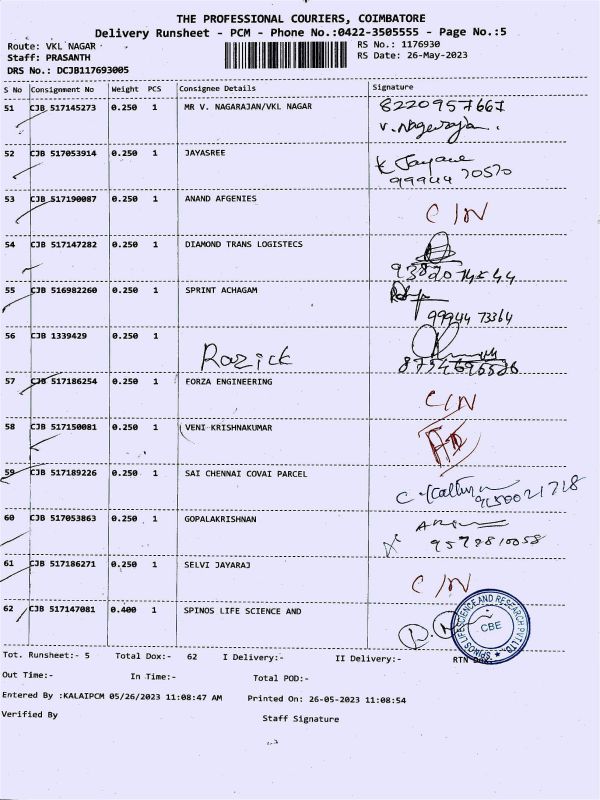 THE PROFESSIONAL COURIERS, COIMBATORE
Delivery Runsheet - PCM - Phone No.:0422-3505555 - Page No.:5
Route: VKL NAGAR RS No.: 1176930
Staff: PRASANTH RS Date: 26-May-2023
DRS No.: DCJB117693005
S No Consignment No Weight PCS Consignee Details Signature
51 CJB 517145273 0.250 1 MR V. NAGARAJAN/VKL NAGAR 8220957667
V. Nagarajan.
52 CJB 517053914 0.250 1 JAYASREE
99944 70570
53 CJB 517190087 0.250 1 ANAND AFGENIES C/N
54 CJB 517147282 0.250 1 DIAMOND TRANS LOGISTECS
55 CJB 516982260 0.250 1 SPRINT ACHAGAM
99944 73364
56 CJB 1339429 0.250 1
Razick
57 CJB 517186254 0.250 1 FORZA ENGINEERING C/N
58 CJB 517150081 0.250 1 VENI KRISHNAKUMAR
59 CJB 517189226 0.250 1 SAI CHENNAI COVAI PARCEL
60 CJB 517053863 0.250 1 GOPALAKRISHNAN
61 CJB 517186271 0.250 1 SELVI JAYARAJ C/N
62 CJB 517147081 0.400 1 SPINOS LIFE SCIENCE AND
SPINOS LIFE SCIENCE AND RESEARCH PVT LTD.
CBE
Tot. Runsheet:- 5 Total Dox:- 62 I Delivery:- II Delivery:- RTN
Out Time:- In Time:- Total POD:-
Entered By :KALAIPCM 05/26/2023 11:08:47 AM Printed On: 26-05-2023 11:08:54
Verified By Staff Signature